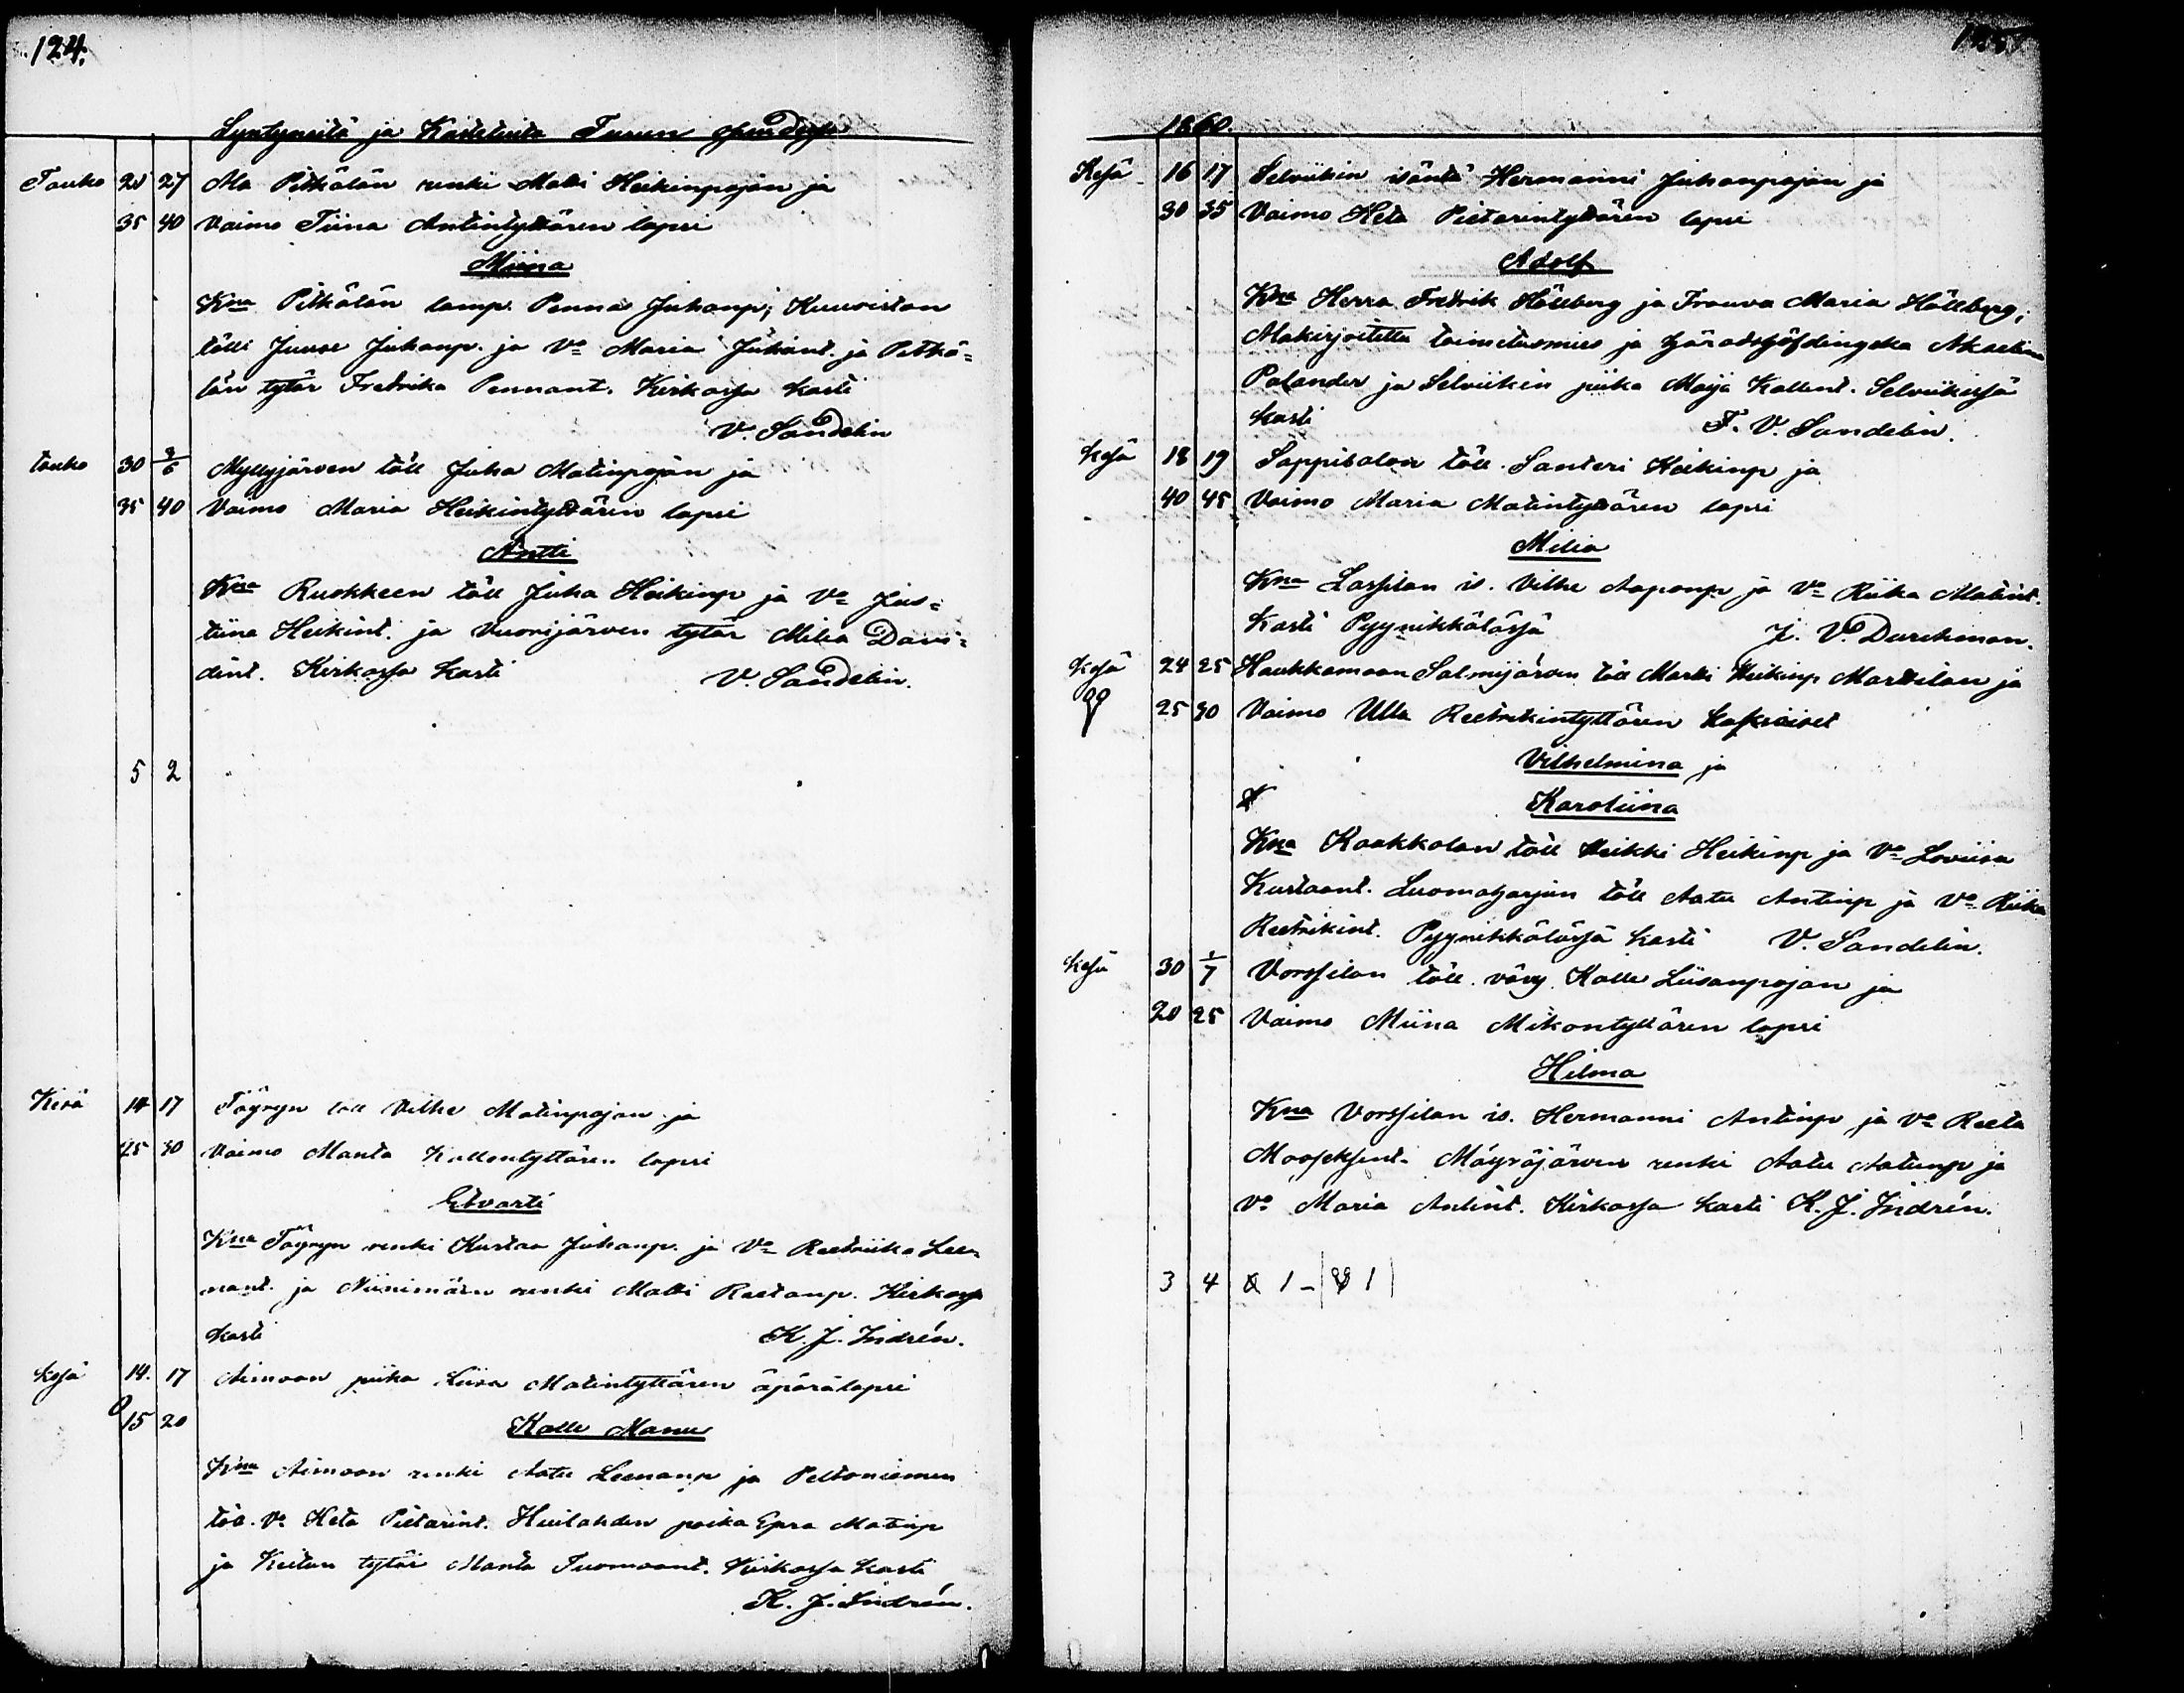 124.
Syntyneitä ja Kastetuita Turun
Touko 20 27 Ala Pitkälän renki Matti Heikinpojan ja
35 40 Vaimo Tiina Antintyttären lapsi
Miina
Kna Pitkälän lamp. Penna Juhanp; Kuuviston
tölli Juuse Juhanp. ja Vo Maria Juhant. ja Pitkä=
län tytär Fredrika Pennant. Kirkossa kasti
V. Sandelin
touko 30 3/6 Myllyjärven töll Juha Matinpojan ja
35 40 Vaimo Maria Heikintyttären lapsi
Antti
Kna Ruokkeen töll Juha Heikinp ja Vo Jus=
tiina Heikint. ja Vuorijärven tytär Milia Davi=
dint. Kirkossa kasti V. Sandelin.
5 2
Kesä 14 17 Töyryn töll Vilhe Matinpojan ja
25 30 Vaimo Manta Kallentyttären lapsi
Etvarti
Kna Töyryn renki Kustaa Juhanp. ja Vo Reetriika Lee=
nant. ja Niinimäen renki Matti Reetanp. Kirkossa
kasti K. J. Indrén.
kesä 14. 17 Aimoon piika Liisa Matintyttären äpärälapsi
15 20
Kalle Manu
Kna Aimoon renki Aatu Leenanp ja Peltoniemen
töll. Vo Keta Pietarint. Huilahden poika Epra Matinp
ja Keitun tytär Manta Tuomaant. Kirkossa kasti
K. J. Indrén.
125.
1860.
Kesä 16 17 Selviikin isäntä Hermanni Juhanpojan ja
30 35 Vaimo Keta Pietarintyttären lapsi
Adolf
Kna Herra Fredrik Hällberg ja Frouva Maria Hällberg;
Alakirjoitettu toimitusmies ja Häradshöfdingska Akselina
Polander ja Selviikin piika Maija Kallent. Selviikissä
kasti F. V. Sandelin.
kesä 18 19 Sappisalon töll. Santeri Heikinp ja
40 45 Vaimo Maria Matintyttären lapsi
Milia
Kna Lassilan is. Vilhe Aaponp ja Vo Riika Matint.
kasti Pyynikkölässä J. V. Durchman.
kesä 24 25 Haukkamaan Salmijärven töll Martti Heikinp Marttilan ja
25 30 Vaimo Ulla Reetrikintyttären kaksoiset
Vilhelmina ja
Karoliina
Kna Kaakkolan töll Heikki Heikinp ja Vo Loviisa
Kustaant. Luomaharjun töll Aatu Antinp ja Vo Riika
Reetrikint. Pyynikkölässä kasti V. Sandelin.
kesä 30 1/7 Vorssilan töll. vävy Kalle Liisanpojan ja
20 25 Vaimo Miina Mikontyttären lapsi
Hilma
Kna Vorssilan is. Hermanni Antinp ja Vo Reeta
Mooseksent. Mäyräjärven renki Aatu Aatunp ja
Vo Maria Antint. Kirkossa kasti K. J. Indrén.
3 4 1 - 1